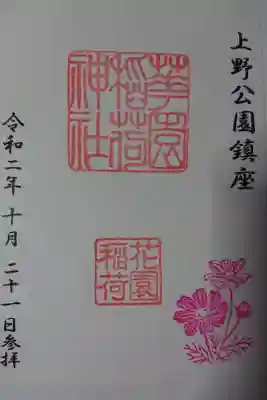 上野公園鎮座
華園
稲荷
神社
花園
稲荷
令和二年十月二十一日参拝